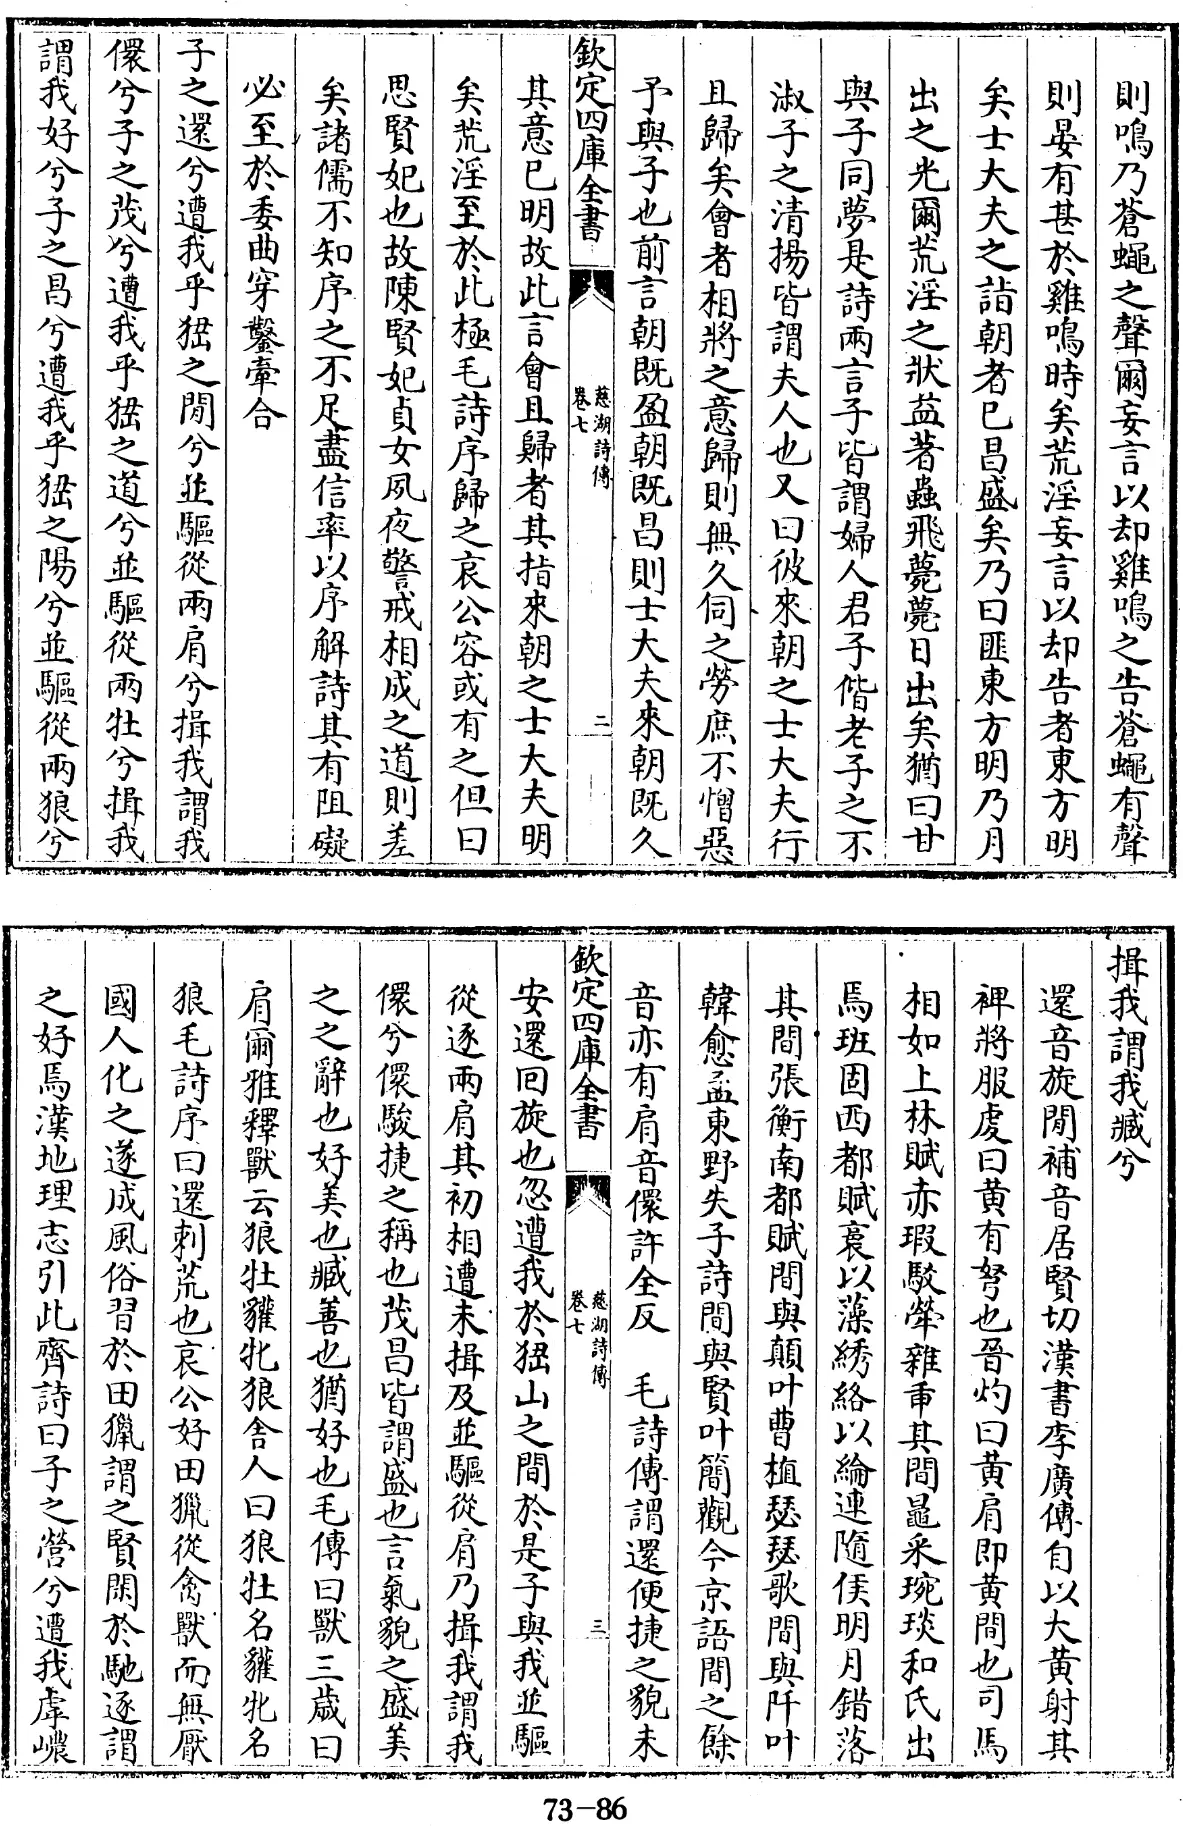 則鳴乃蒼蠅之聲爾妄言以却雞鳴之告蒼蠅有聲
則晏有甚於雞鳴時矣荒淫妄言以却告者東方明
矣士大夫之詣朝者已昌盛矣乃曰匪東方明乃月
出之光爾荒淫之狀益著蟲飛薨薨日出矣猶曰甘
與子同夢是詩兩言子皆謂婦人君子偕老子之不
淑子之清揚皆謂夫人也又曰彼來朝之士大夫行
且歸矣會者相將之意歸則無久伺之勞庶不憎惡
予與子也前言朝既盈朝既昌則士大夫來朝既久
欽定四庫全書
慈湖詩傳
卷七
二
其意已明故此言會且歸者其指來朝之士大夫明
矣荒淫至於此極毛詩序歸之哀公容或有之但曰
思賢妃也故陳賢妃貞女夙夜警戒相成之道則差
矣諸儒不知序之不足盡信率以序解詩其有阻礙
必至於委曲穿鑿牽合
子之還兮遭我乎峱之閒兮並驅從兩肩兮揖我謂我
儇兮子之茂兮遭我乎峱之道兮並驅從兩牡兮揖我
謂我好兮子之昌兮遭我乎峱之陽兮並驅從兩狼兮
揖我謂我臧兮
還音旋閒補音居賢切漢書李廣傳自以大黄射其
裨將服虔曰黄肩弩也晉灼曰黄肩即黄間也司馬
相如上林賦赤瑕駁犖雜臿其間鼂采琬琰和氏出
焉班固西都賦裛以藻綉絡以綸連隨侯明月錯落
其間張衡南都賦間與顛叶曹植瑟瑟歌間與阡叶
韓愈孟東野失子詩間與賢叶簡觀今京語間之餘
音亦有肩音儇許全反　毛詩傳謂還便捷之貌未
欽定四庫全書
慈湖詩傳
卷七
三
安還回旋也忽遭我於峱山之間於是子與我並驅
從逐兩肩其初相遭未揖及並驅從肩乃揖我謂我
儇兮儇駿捷之稱也茂昌皆謂盛也言氣貌之盛美
之之辭也好美也臧善也猶好也毛傳曰獸三歳曰
肩爾雅釋獸云狼牡貛牝狼舎人曰狼牡名貛牝名
狼毛詩序曰還刺荒也哀公好田獵從禽獸而無厭
國人化之遂成風俗習於田獵謂之賢閑於馳逐謂
之好焉漢地理志引此齊詩曰子之營兮遭我虖嶩
73-86